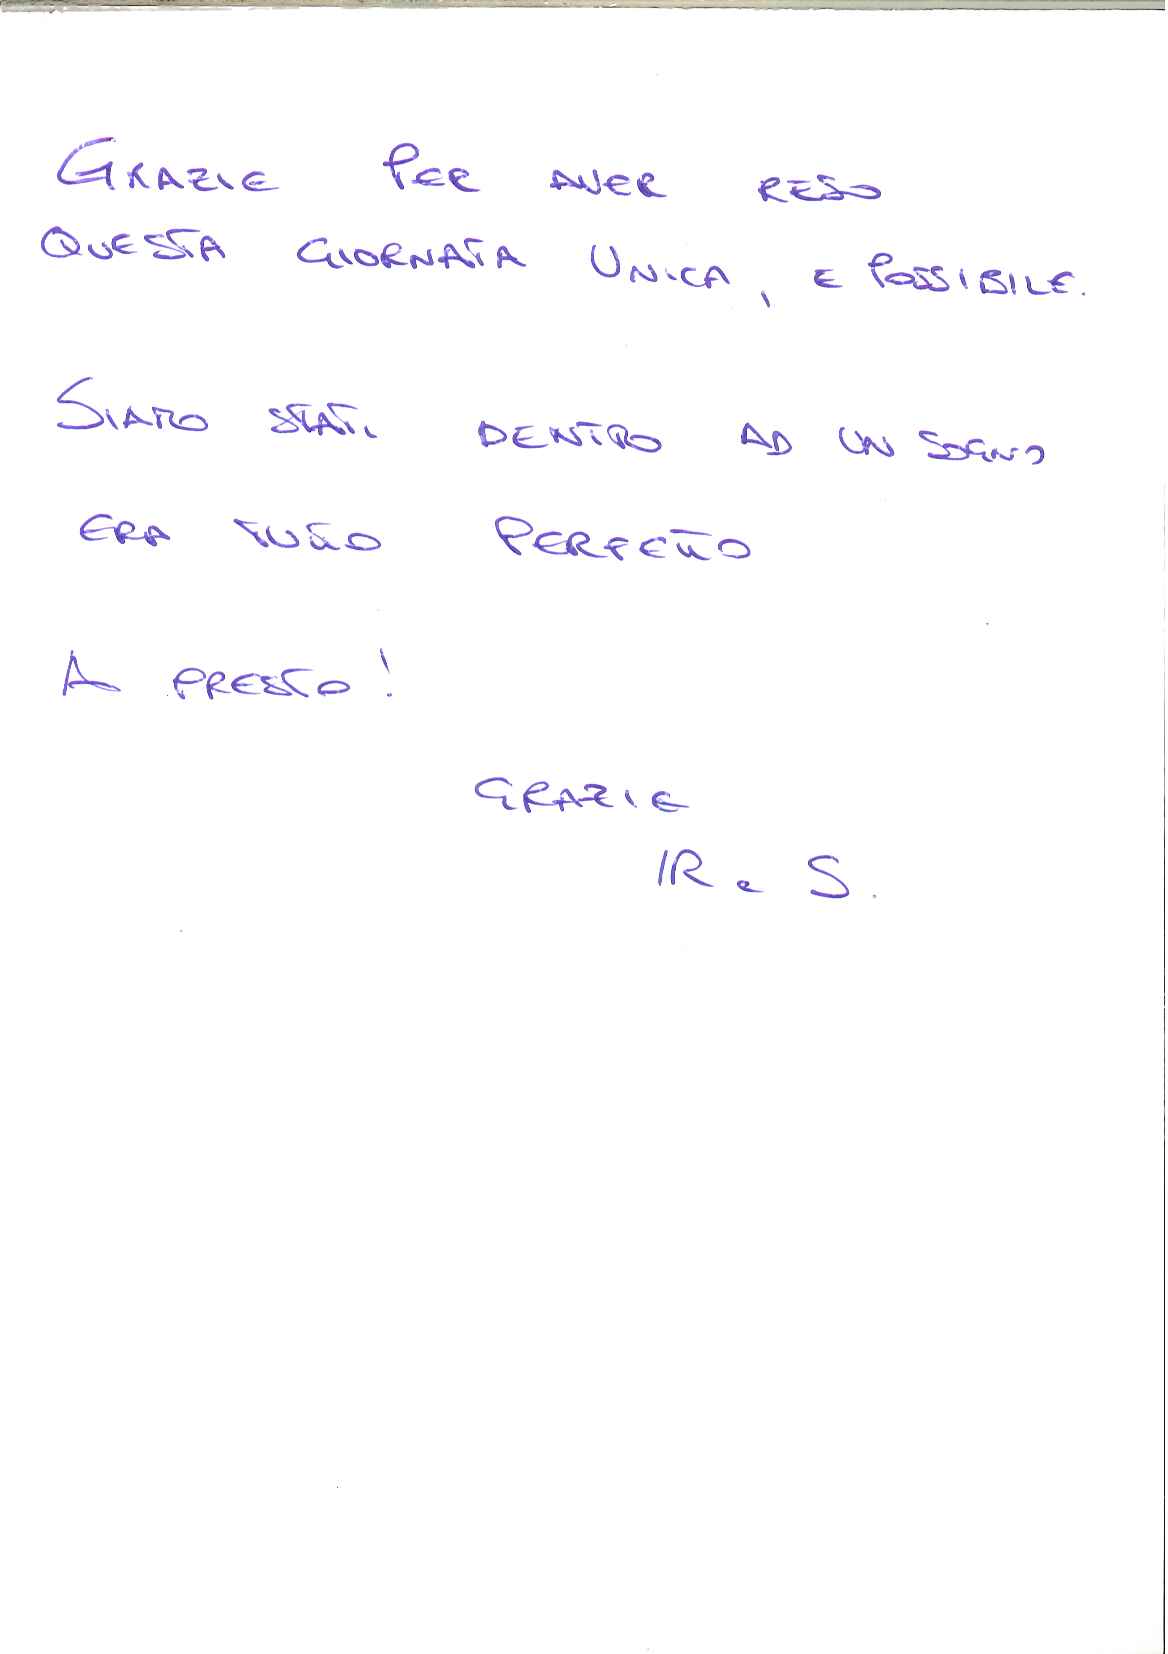 GRAZIE PER AVER RESO
QUESTA GIORNATA UNICA, E POSSIBILE.
SIAMO STATI DENTRO AD UN SOGNO
ERA TUTTO PERFETTO
A PRESTO!
GRAZIE
IR e S.